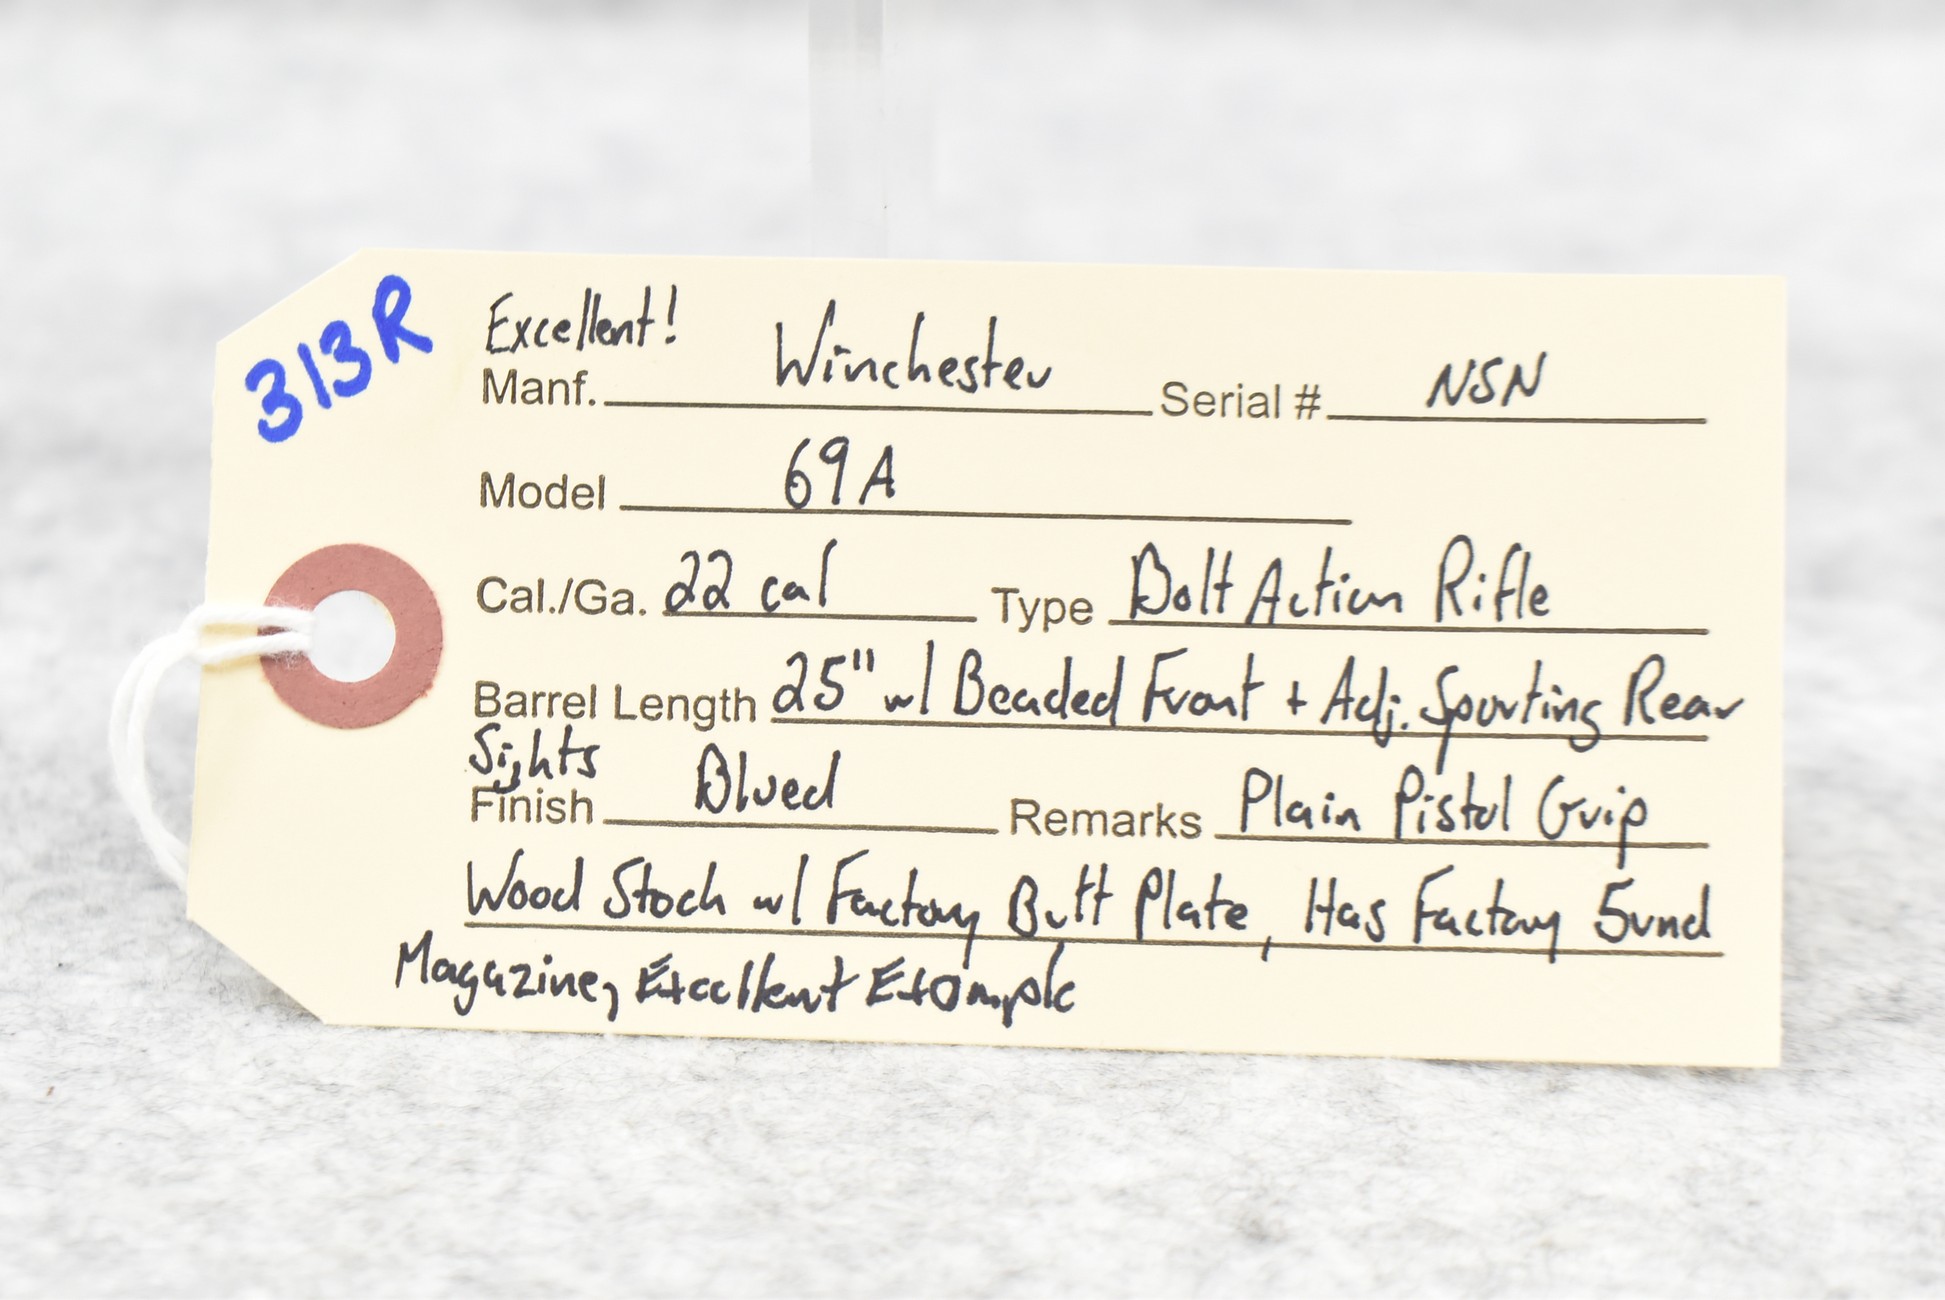 313R
Excellent!
Manf. Winchester Serial # NSN
Model 69A
Cal./Ga. 22 cal Type Bolt Action Rifle
Barrel Length 25" w/ Beaded Front + Adj. Sporting Rear
Sights
Finish Blued Remarks Plain Pistol Grip
Wood Stock w/ Factory Butt Plate, Has Factory 5rnd
Magazine, Excellent Example